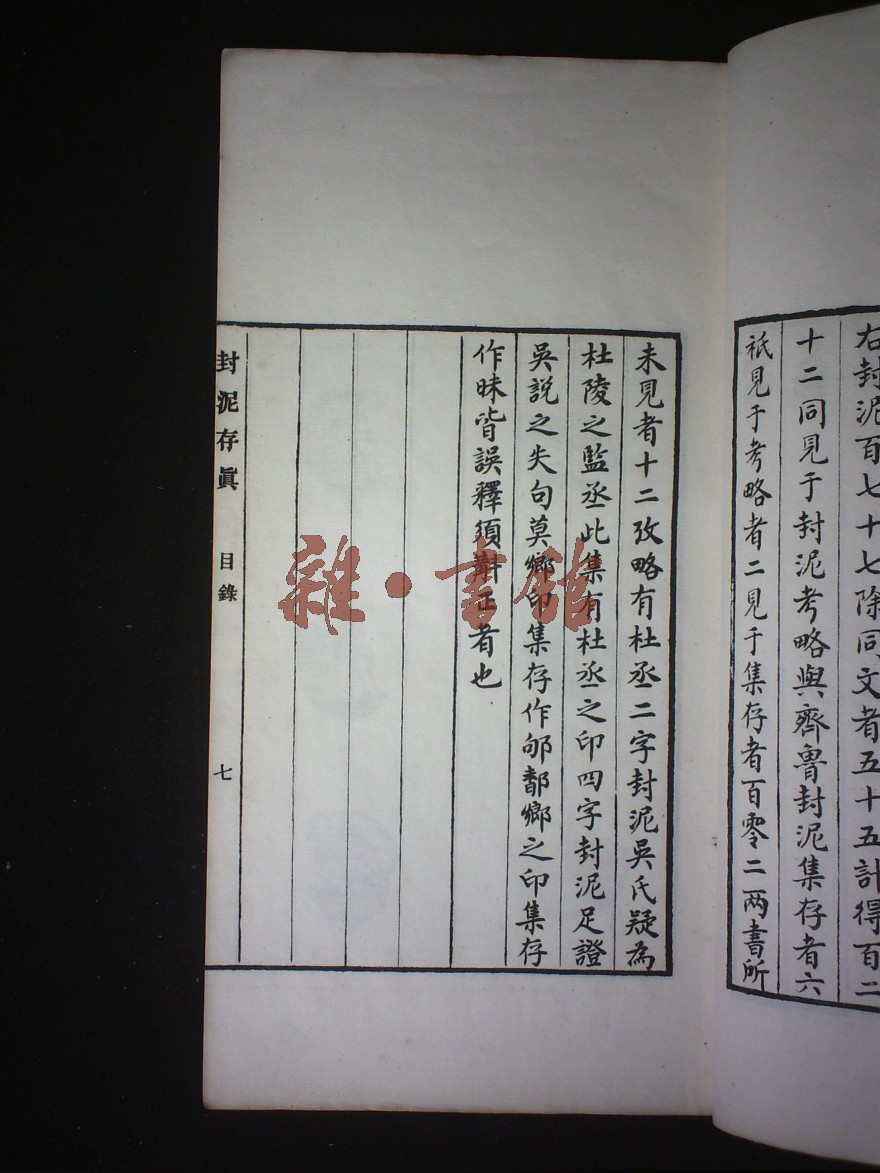 右封泥百七十七除同文者五十五計得百二
十二同見于封泥考略與齊魯封泥集存者六
祇見于考略者二見于集存者百零二兩書所
未見者十二攷略有杜丞二字封泥吳氏疑為
杜陵之監丞此集有杜丞之印四字封泥足證
吳說之失句莫鄉印集存作邭鄀鄉之印集存
作昧皆誤釋須斠正者也
封泥存眞 目錄 七
雜·書館